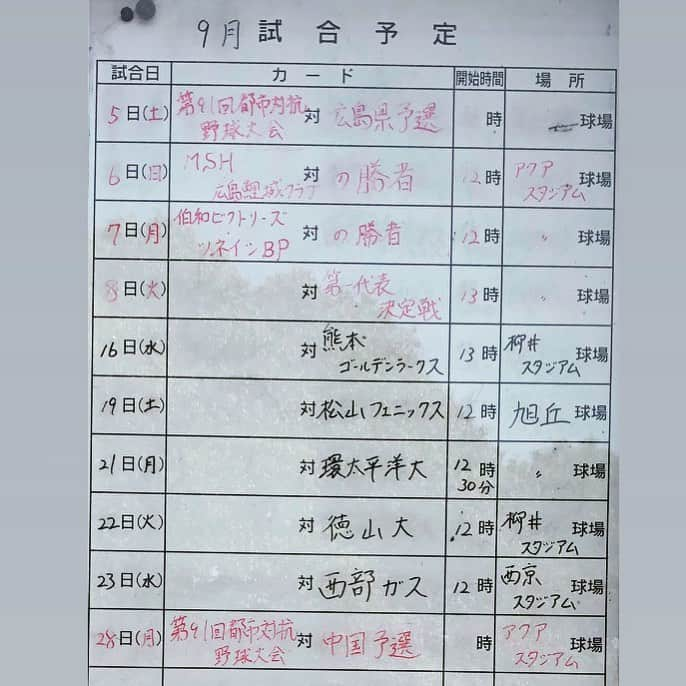 9月 試合予定
試合日 カード 開始時間 場所
5日(土) 第91回都市対抗 対 広島県予選 時 球場
野球大会
6日(日) MSH 対 の勝者 12時 アクア 球場
広島鯉城クラブ スタジアム
7日(月) 伯和ビクトリーズ 対 の勝者 12時 〃 球場
ツネイシBP
8日(火) 対 第一代表 13時 〃 球場
決定戦
16日(水) 対 熊本 13時 柳井 球場
ゴールデンラークス スタジアム
19日(土) 対 松山フェニックス 12時 旭丘 球場
21日(月) 対 環太平洋大 12時 〃 球場
30分
22日(火) 対 徳山大 12時 柳井 球場
スタジアム
23日(水) 対 西部ガス 12時 西京 球場
スタジアム
28日(月) 第91回都市対抗 対 中国予選 時 アクア 球場
野球大会 スタジアム